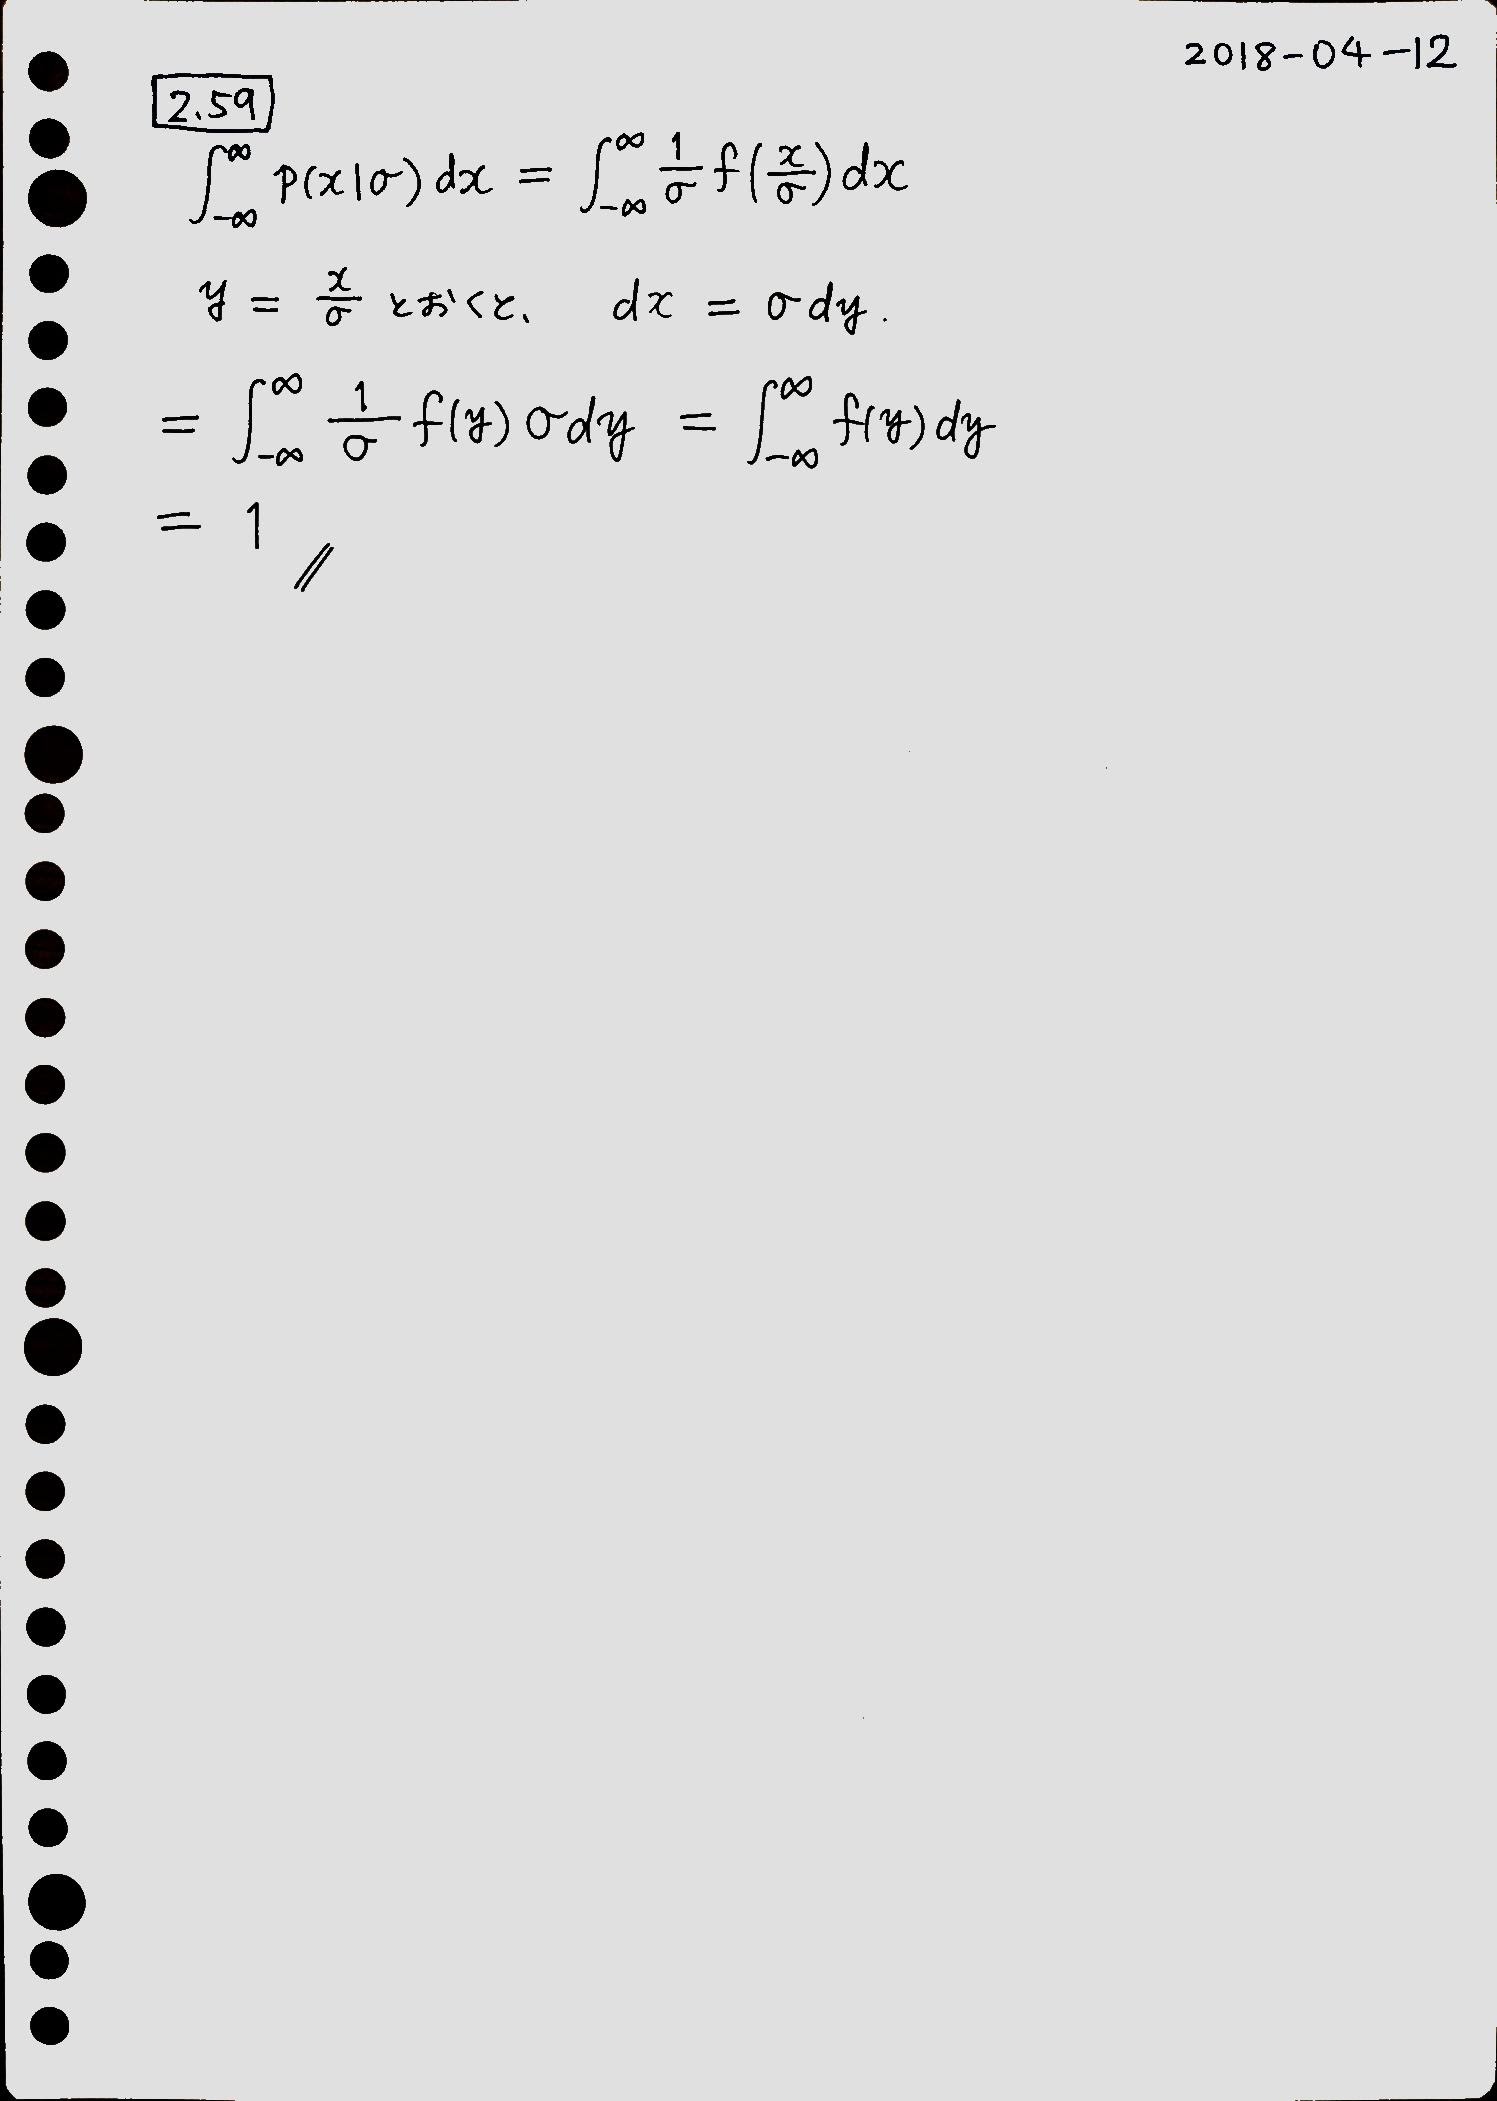 2018-04-12
2.59
∫_{-∞}^{∞} p(x|σ) dx = ∫_{-∞}^{∞} \frac{1}{σ} f(\frac{x}{σ}) dx
y = \frac{x}{σ} とおくと、 dx = σ dy.
= ∫_{-∞}^{∞} \frac{1}{σ} f(y) σ dy = ∫_{-∞}^{∞} f(y) dy
= 1 //